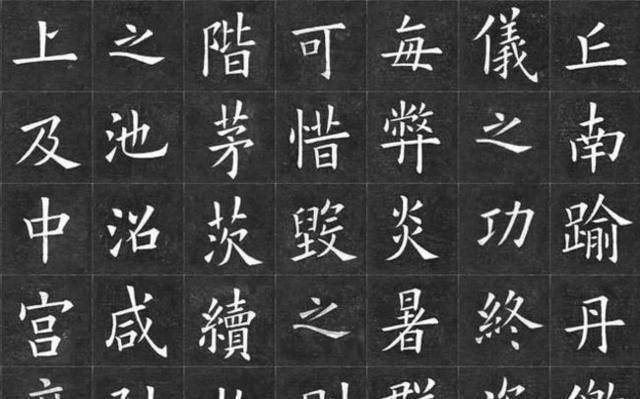 丘南踰丹
儀之功終
每弊炎暑
可惜毀之
階茅茨續
之池沼咸
上及中宫